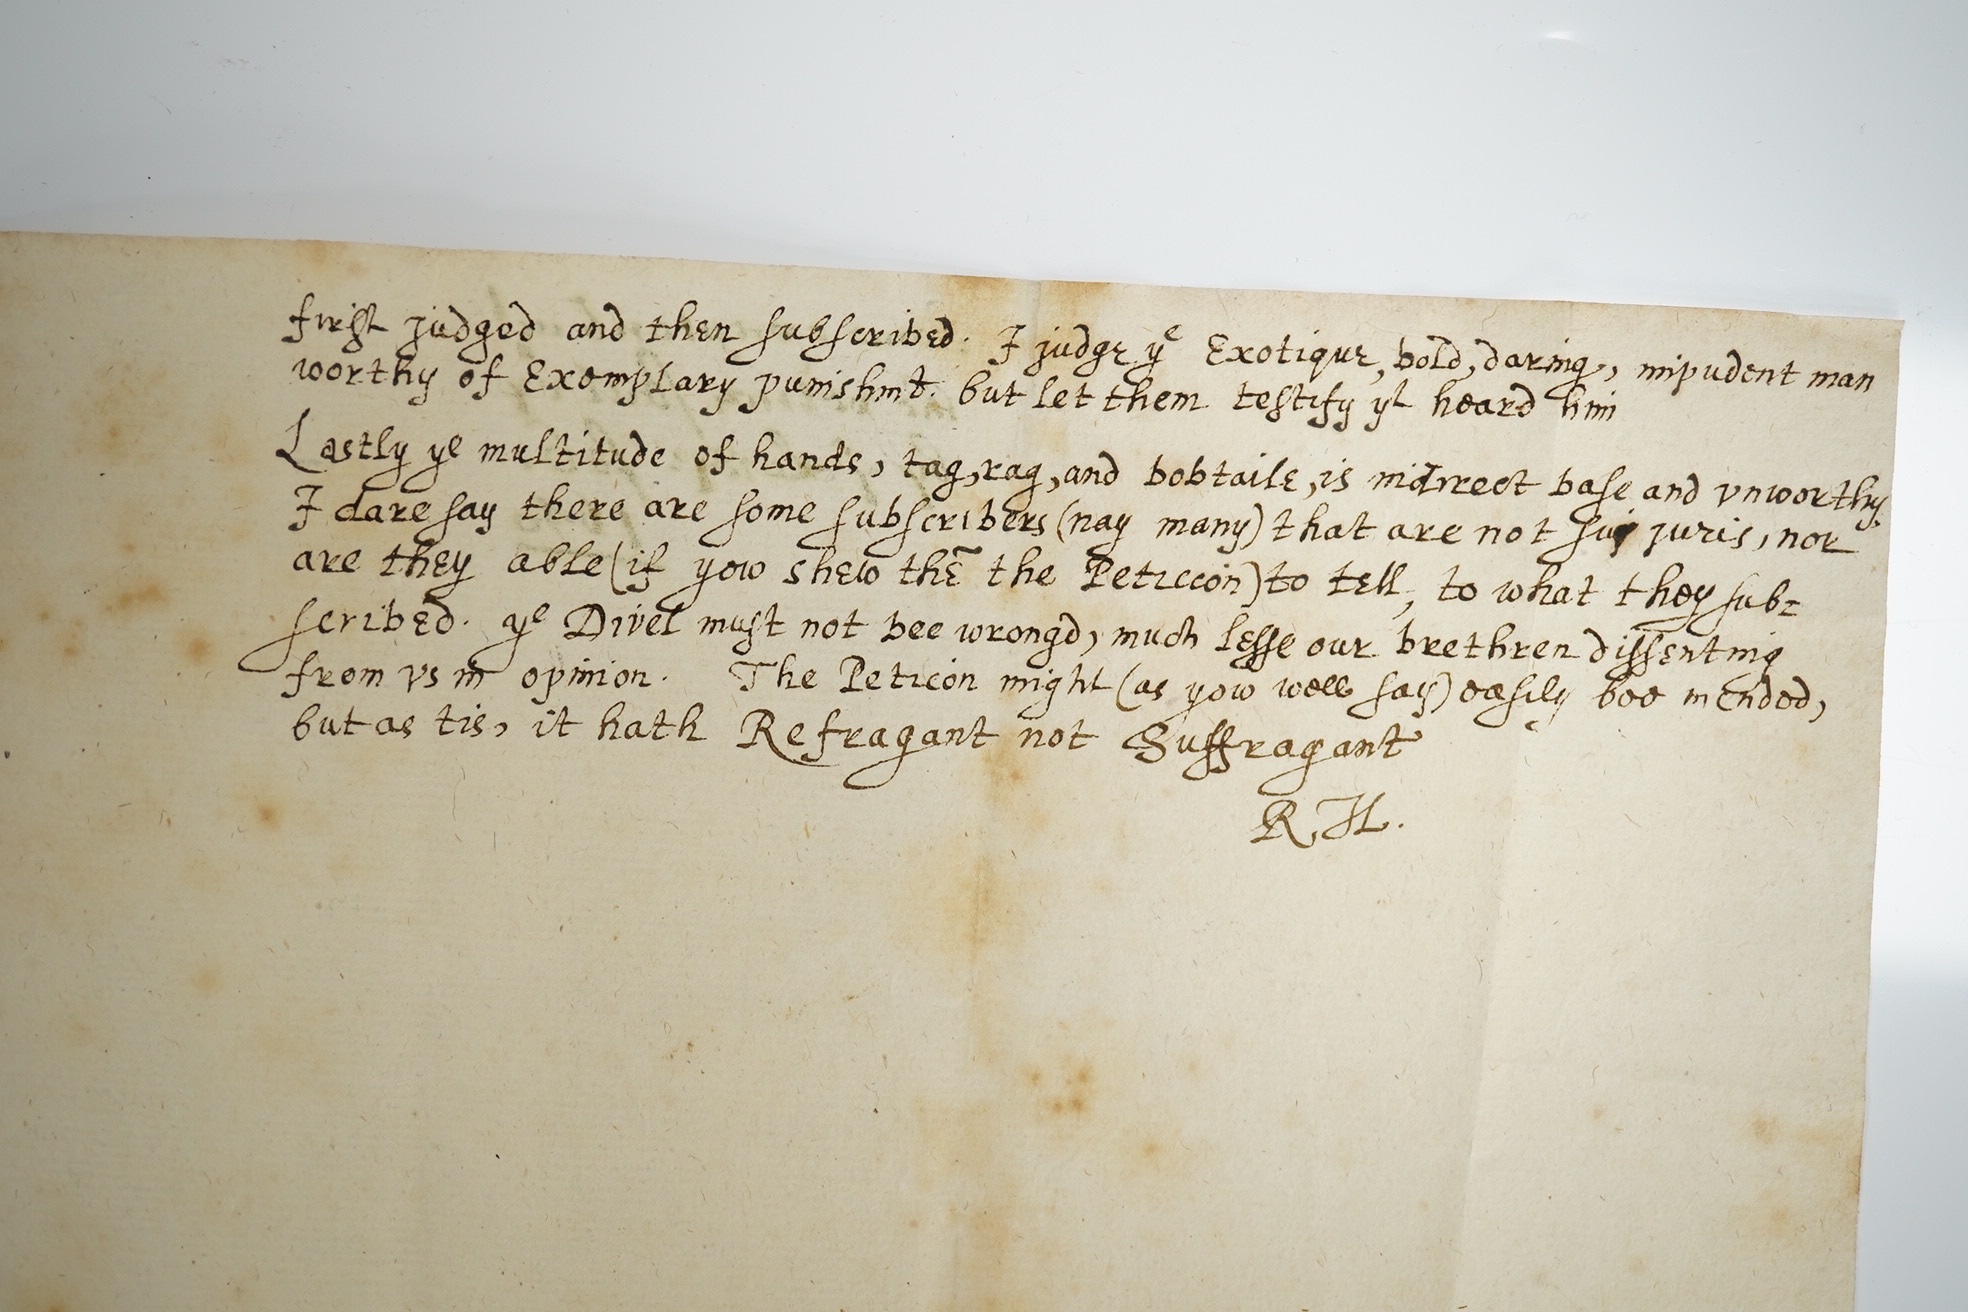 first judged and then subscribed. I judge yᵉ Exotique, bold, daring, impudent man
worthy of Exemplary punishmt. but let them testify yᵗ heard him
Lastly yᵉ multitude of hands, tag, rag, and bobtaile, is indirect base and vnworthy,
I dare say there are some subscribers (nay many) that are not sui juris, nor
are they able (if yow shew thē the Peticcon) to tell, to what they sub=
scribed. yᵉ Divel must not bee wrongd, much lesse our brethren dissenting
from vs in opinion. The Peticon might (as yow well say) easily bee mended,
but as tis, it hath Refragant not Suffragant
R. H.